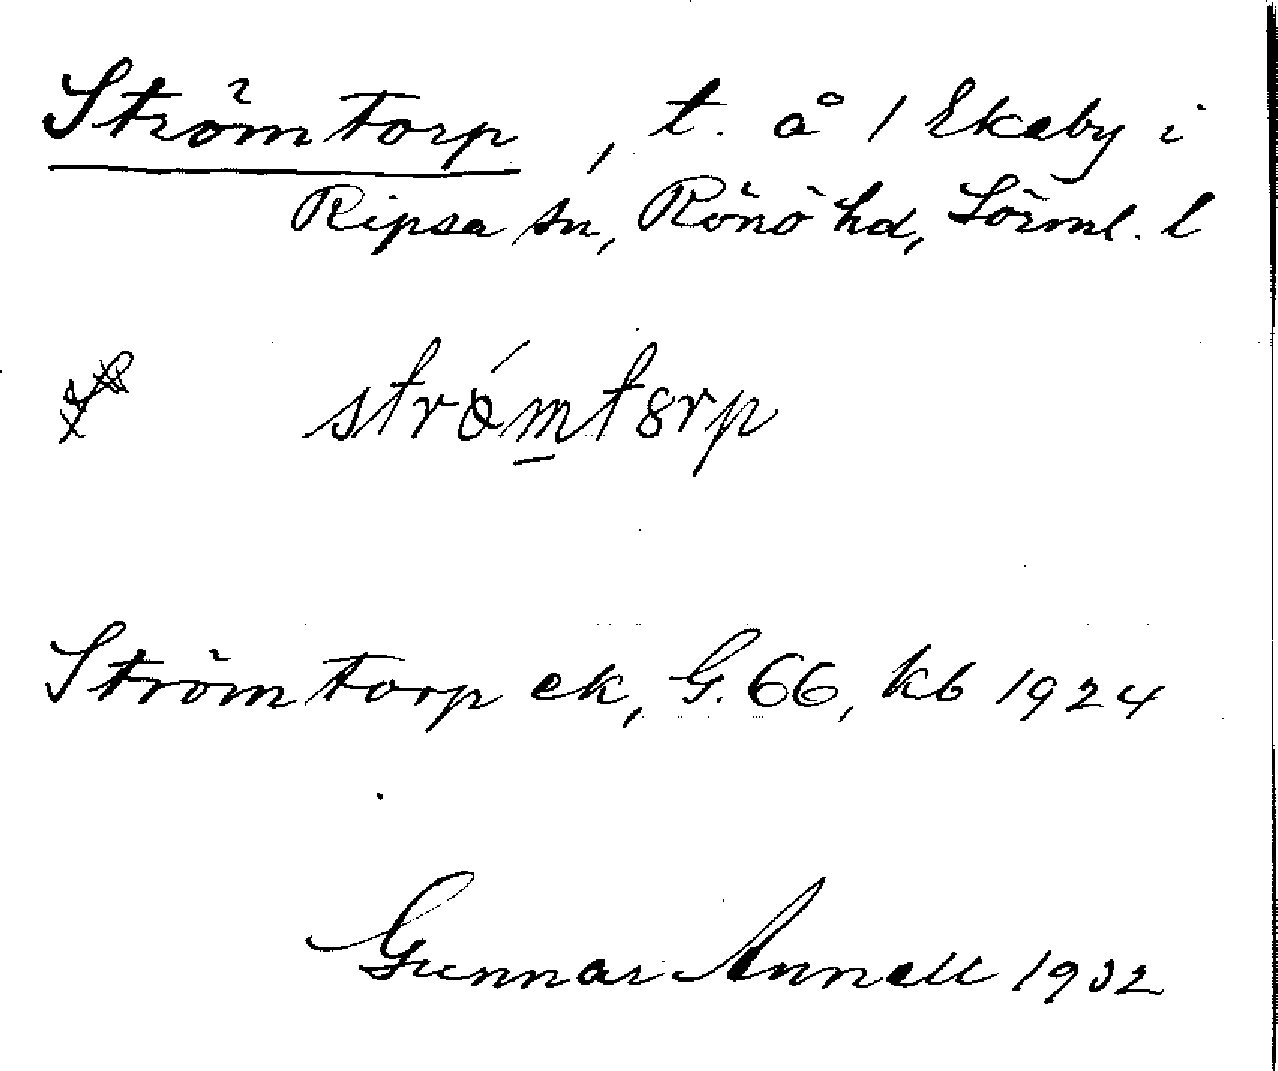 Strömtorp, t. å 1 Ekeby i
Ripsa sn, Rönö hd, Sörml. l
strǿmtȣrp
Strömtorp ek, G. 66, kb 1924
Gunnar Annell 1932